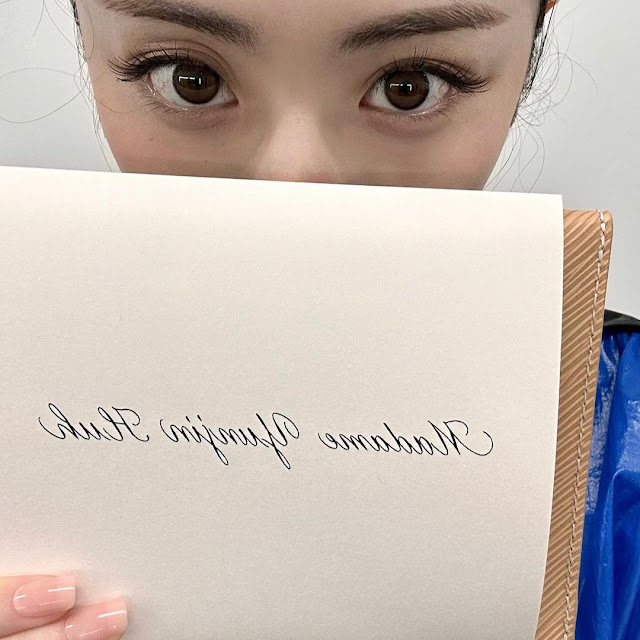 Madame Yunjin Huh